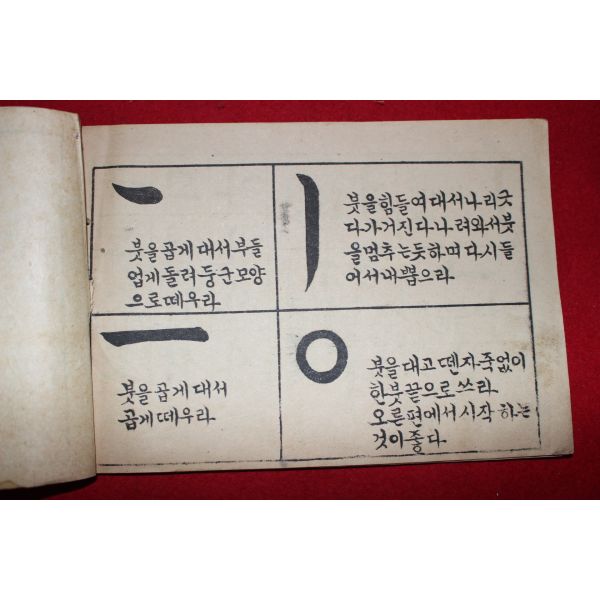 붓을 곱게 대서 부들
업게 돌려 둥군 모양
으로 떼우라
붓을 힘들여 대서 나리긋
다가 거진 다 나려와서 붓
을 멈추는듯하며 다시 들
어서 내뽑으라
붓을 곱게 대서
곱게 떼우라
붓을 대고 뗀 자죽 없이
한 붓끝으로 쓰라
오른편에서 시작 하는
것이 좋다